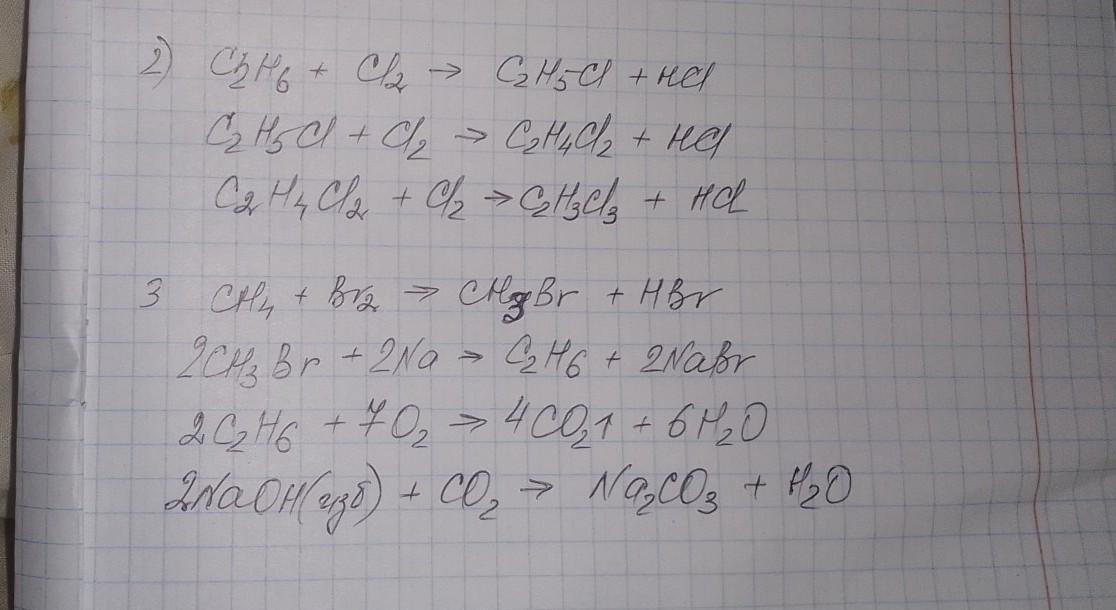 2) C2H6 + Cl2 → C2H5Cl + HCl
C2H5Cl + Cl2 → C2H4Cl2 + HCl
C2H4Cl2 + Cl2 → C2H3Cl3 + HCl
3 CH4 + Br2 → CH3Br + HBr
2CH3Br + 2Na → C2H6 + 2NaBr
2C2H6 + 7O2 → 4CO2↑ + 6H2O
2NaOH(изб) + CO2 → Na2CO3 + H2O